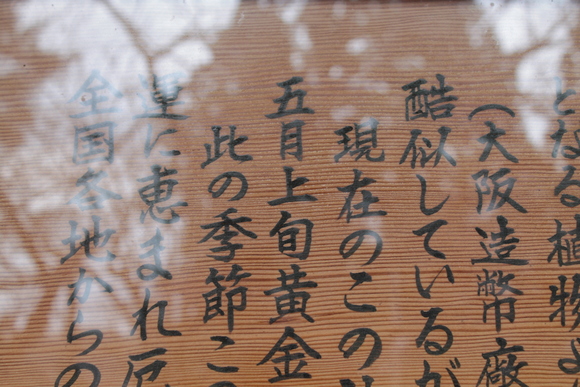 となる植物よ
(大阪造幣廠
酷似しているが
現在のこの
五月上旬黄金
此の季節こ
運に恵まれ
全国各地からの